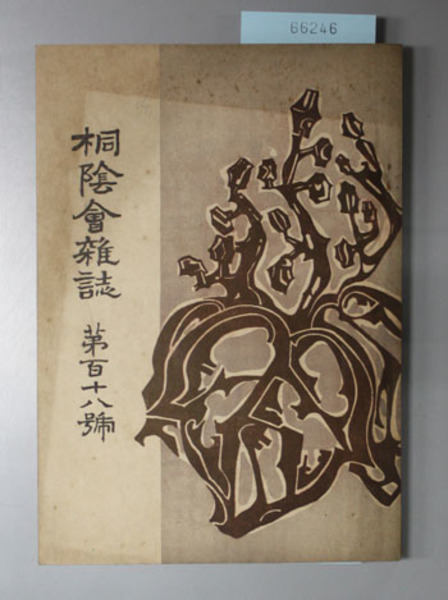 66246
桐陰會雑誌
第百十八號